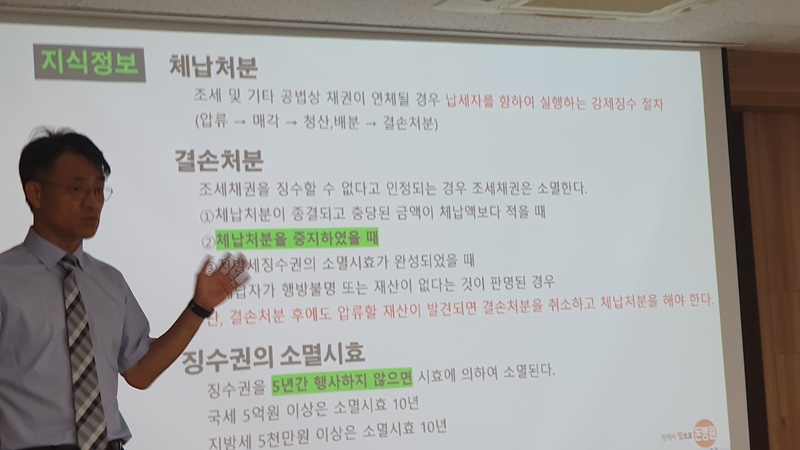 지식정보
체납처분
조세 및 기타 공법상 채권이 연체될 경우 납세자를 향하여 실행하는 강제징수 절차
(압류 → 매각 → 청산,배분 → 결손처분)
결손처분
조세채권을 징수할 수 없다고 인정되는 경우 조세채권은 소멸한다.
①체납처분이 종결되고 충당된 금액이 체납액보다 적을 때
②체납처분을 중지하였을 때
지방세징수권의 소멸시효가 완성되었을 때
행방불명 또는 재산이 없다는 것이 판명된 경우
단, 결손처분 후에도 압류할 재산이 발견되면 결손처분을 취소하고 체납처분을 해야 한다.
징수권의 소멸시효
징수권을 5년간 행사하지 않으면 시효에 의하여 소멸된다.
국세 5억원 이상은 소멸시효 10년
지방세 5천만원 이상은 소멸시효 10년